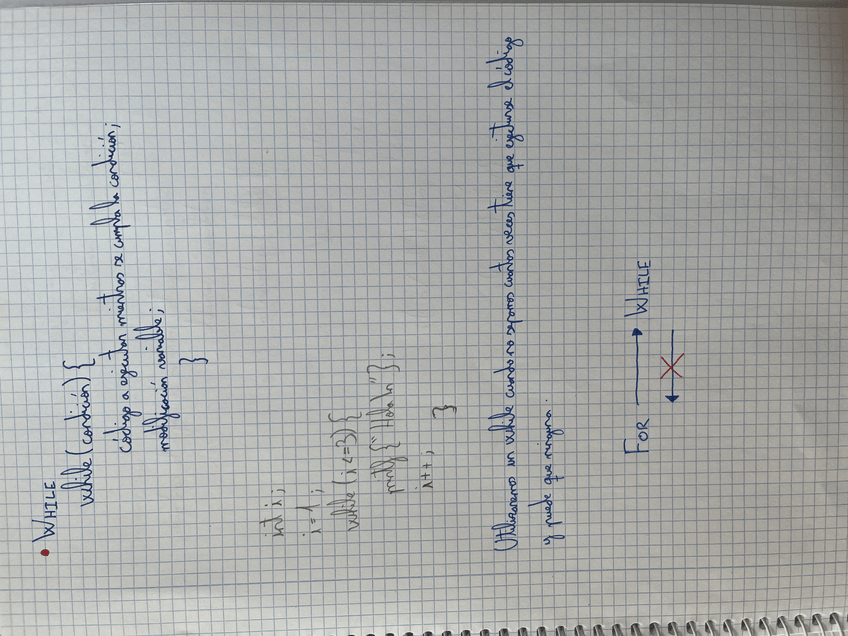 • WHILE
while (condición) {
código a ejecutar mientras se cumpla la condición;
modificación variable;
}
int i;
i = 1;
while (i <= 3) {
printf {"Hola\n"};
i++;
}
Utilizaremos un while cuando no sepamos cuantas veces tiene que ejecutarse el código
y puede que ninguna.
FOR → WHILE
←